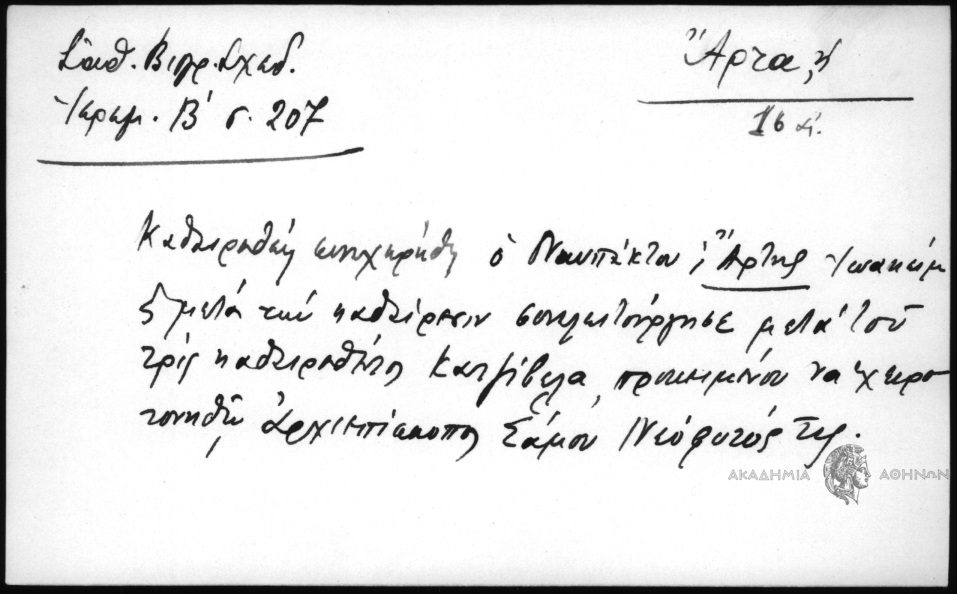 Σάθ. Βιογρ. Σχεδ.
Ἱερεμ. Β' σ. 207
Ἄρτα, ἡ
16 αἰ.
Καθαιρεθείς συνεχωρήθη ὁ Ναυπάκτου κ' Ἄρτης Ἰωακείμ
κ μετά τήν καθαίρεσιν συνελειτούργησε μετά τοῦ
τρίς καθαιρεθέντος Κατζίβελα, προκειμένου νά χειρο-
τονηθῇ Ἀρχιεπίσκοπος Σάμου Νεόφυτός τις.
ΑΚΑΔΗΜΙΑ ΑΘΗΝΩΝ